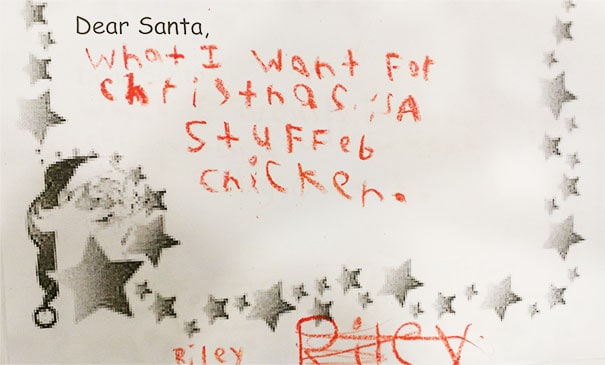 Dear Santa,
What I want For
christmas is A
stuFFeb
chicken.
Riley Riley